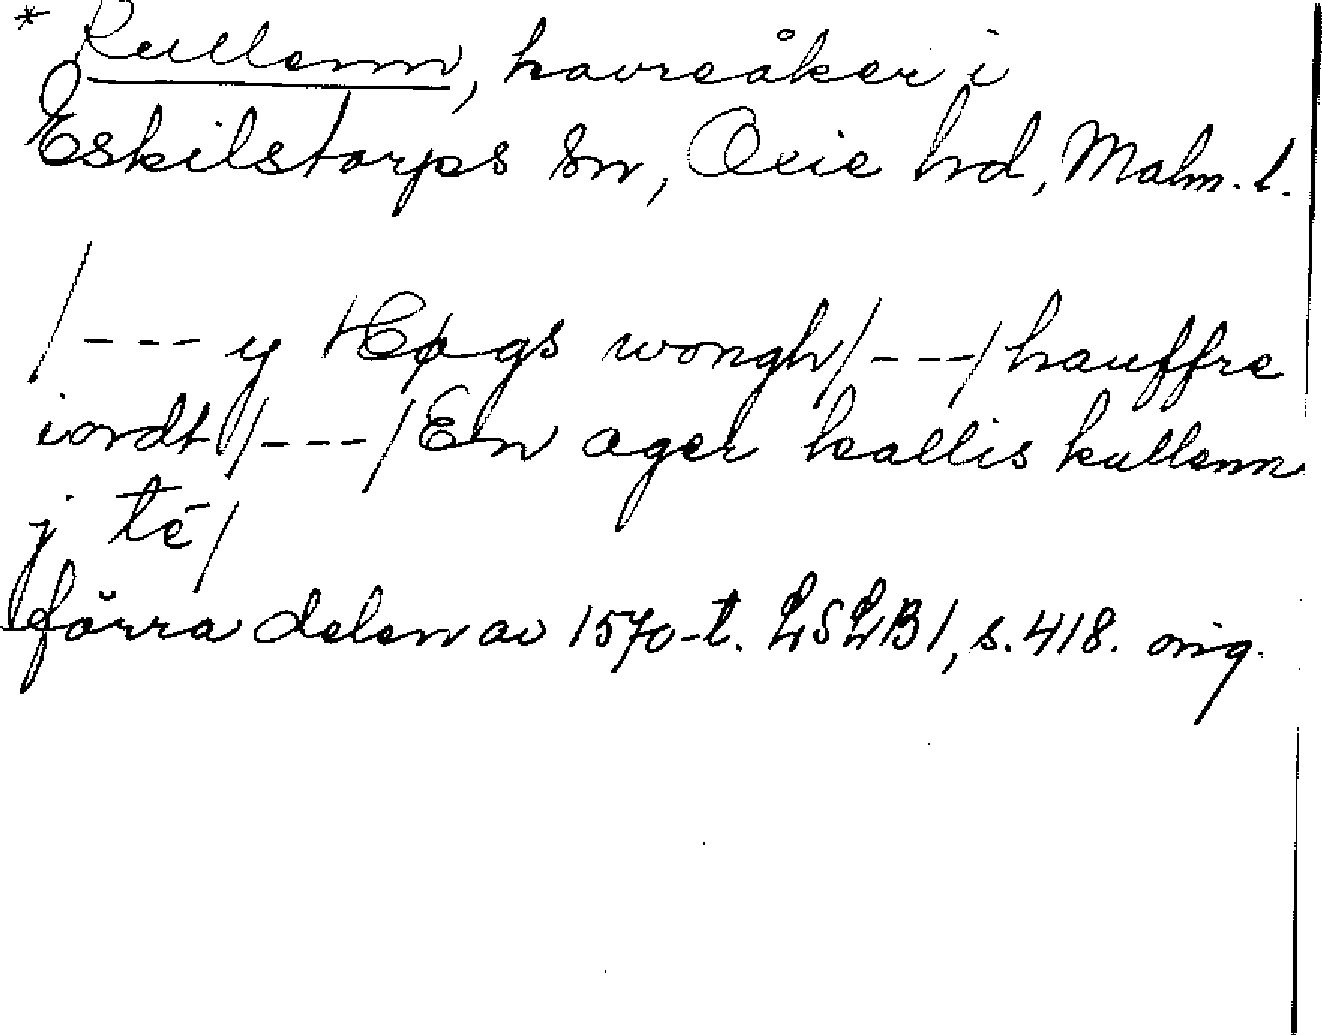 * Kullenn, havreåker i
Eskilstorps sn, Oxie hd, Malm. l.
/--- y Høgs wongh/---/hauffre
iordt/---/En ager kallis kullenn
j té/
förra delen av 1570-t. LSLB1, s. 418. orig.